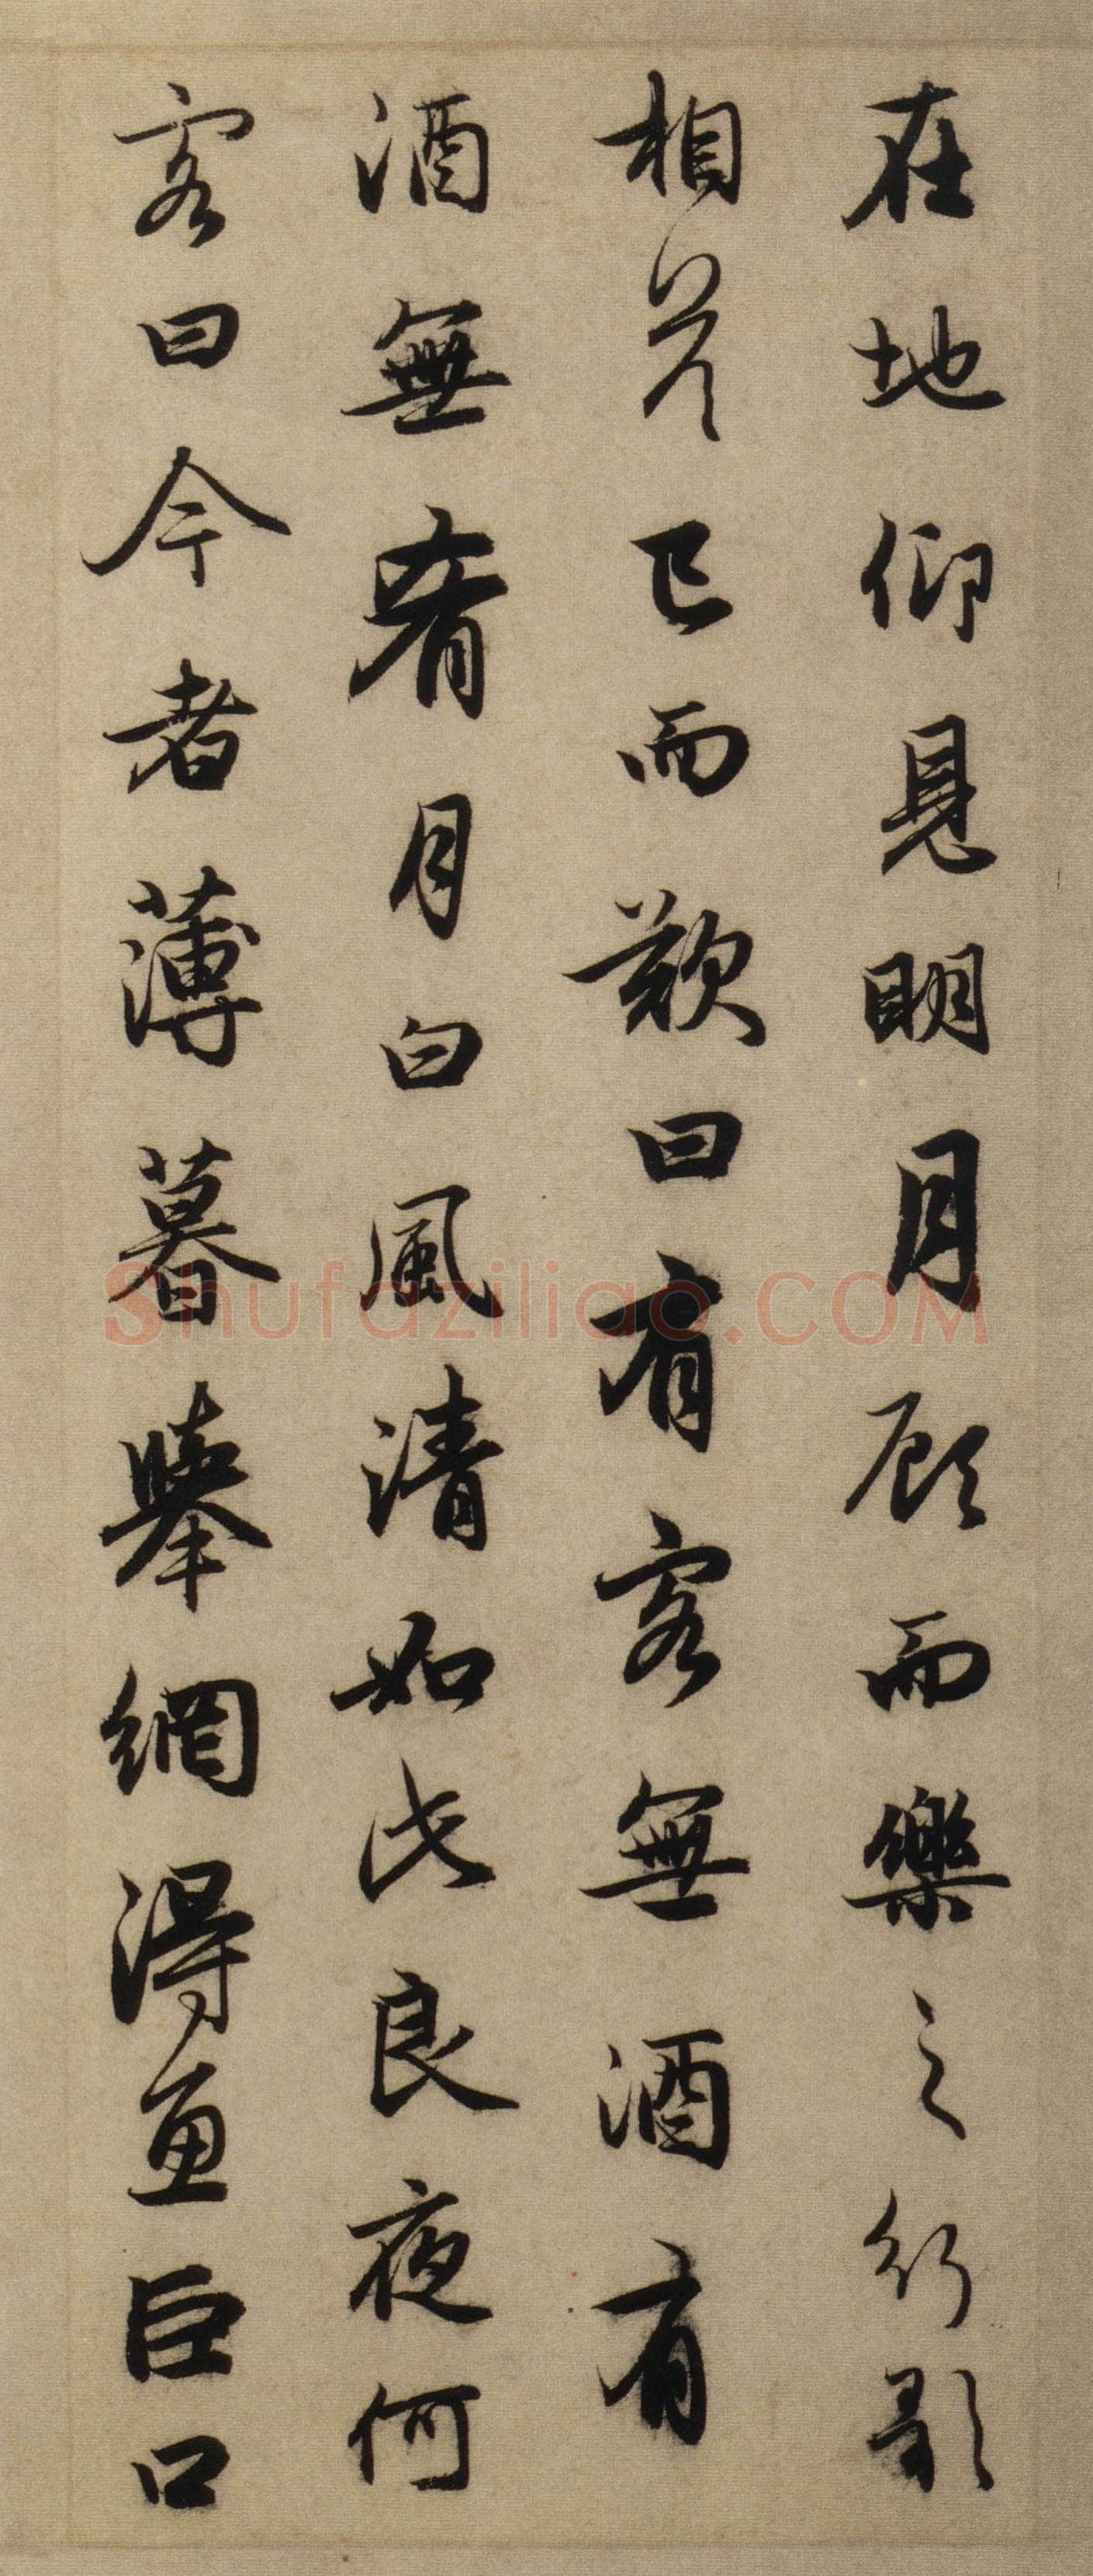 在地仰見明月顧而樂之行歌
相答已而歎曰有客無酒有
酒無肴月白風清如此良夜何
客曰今者薄暮舉網得魚巨口
Shufaziliao.COM